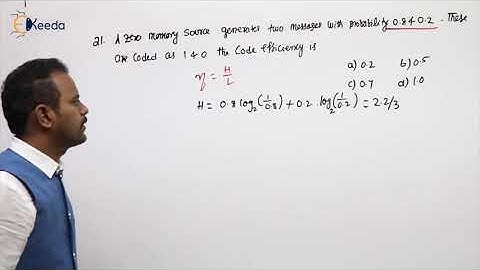 Ekeeda
21. A zero memory source generates two messages with probability 0.8 & 0.2. These
are coded as 1 & 0 the Code efficiency is
a) 0.2 b) 0.5
c) 0.7 d) 1.0
η = H/L
H = 0.8 log₂(1/0.8) + 0.2 . log₂(1/0.2) = 2.2/3